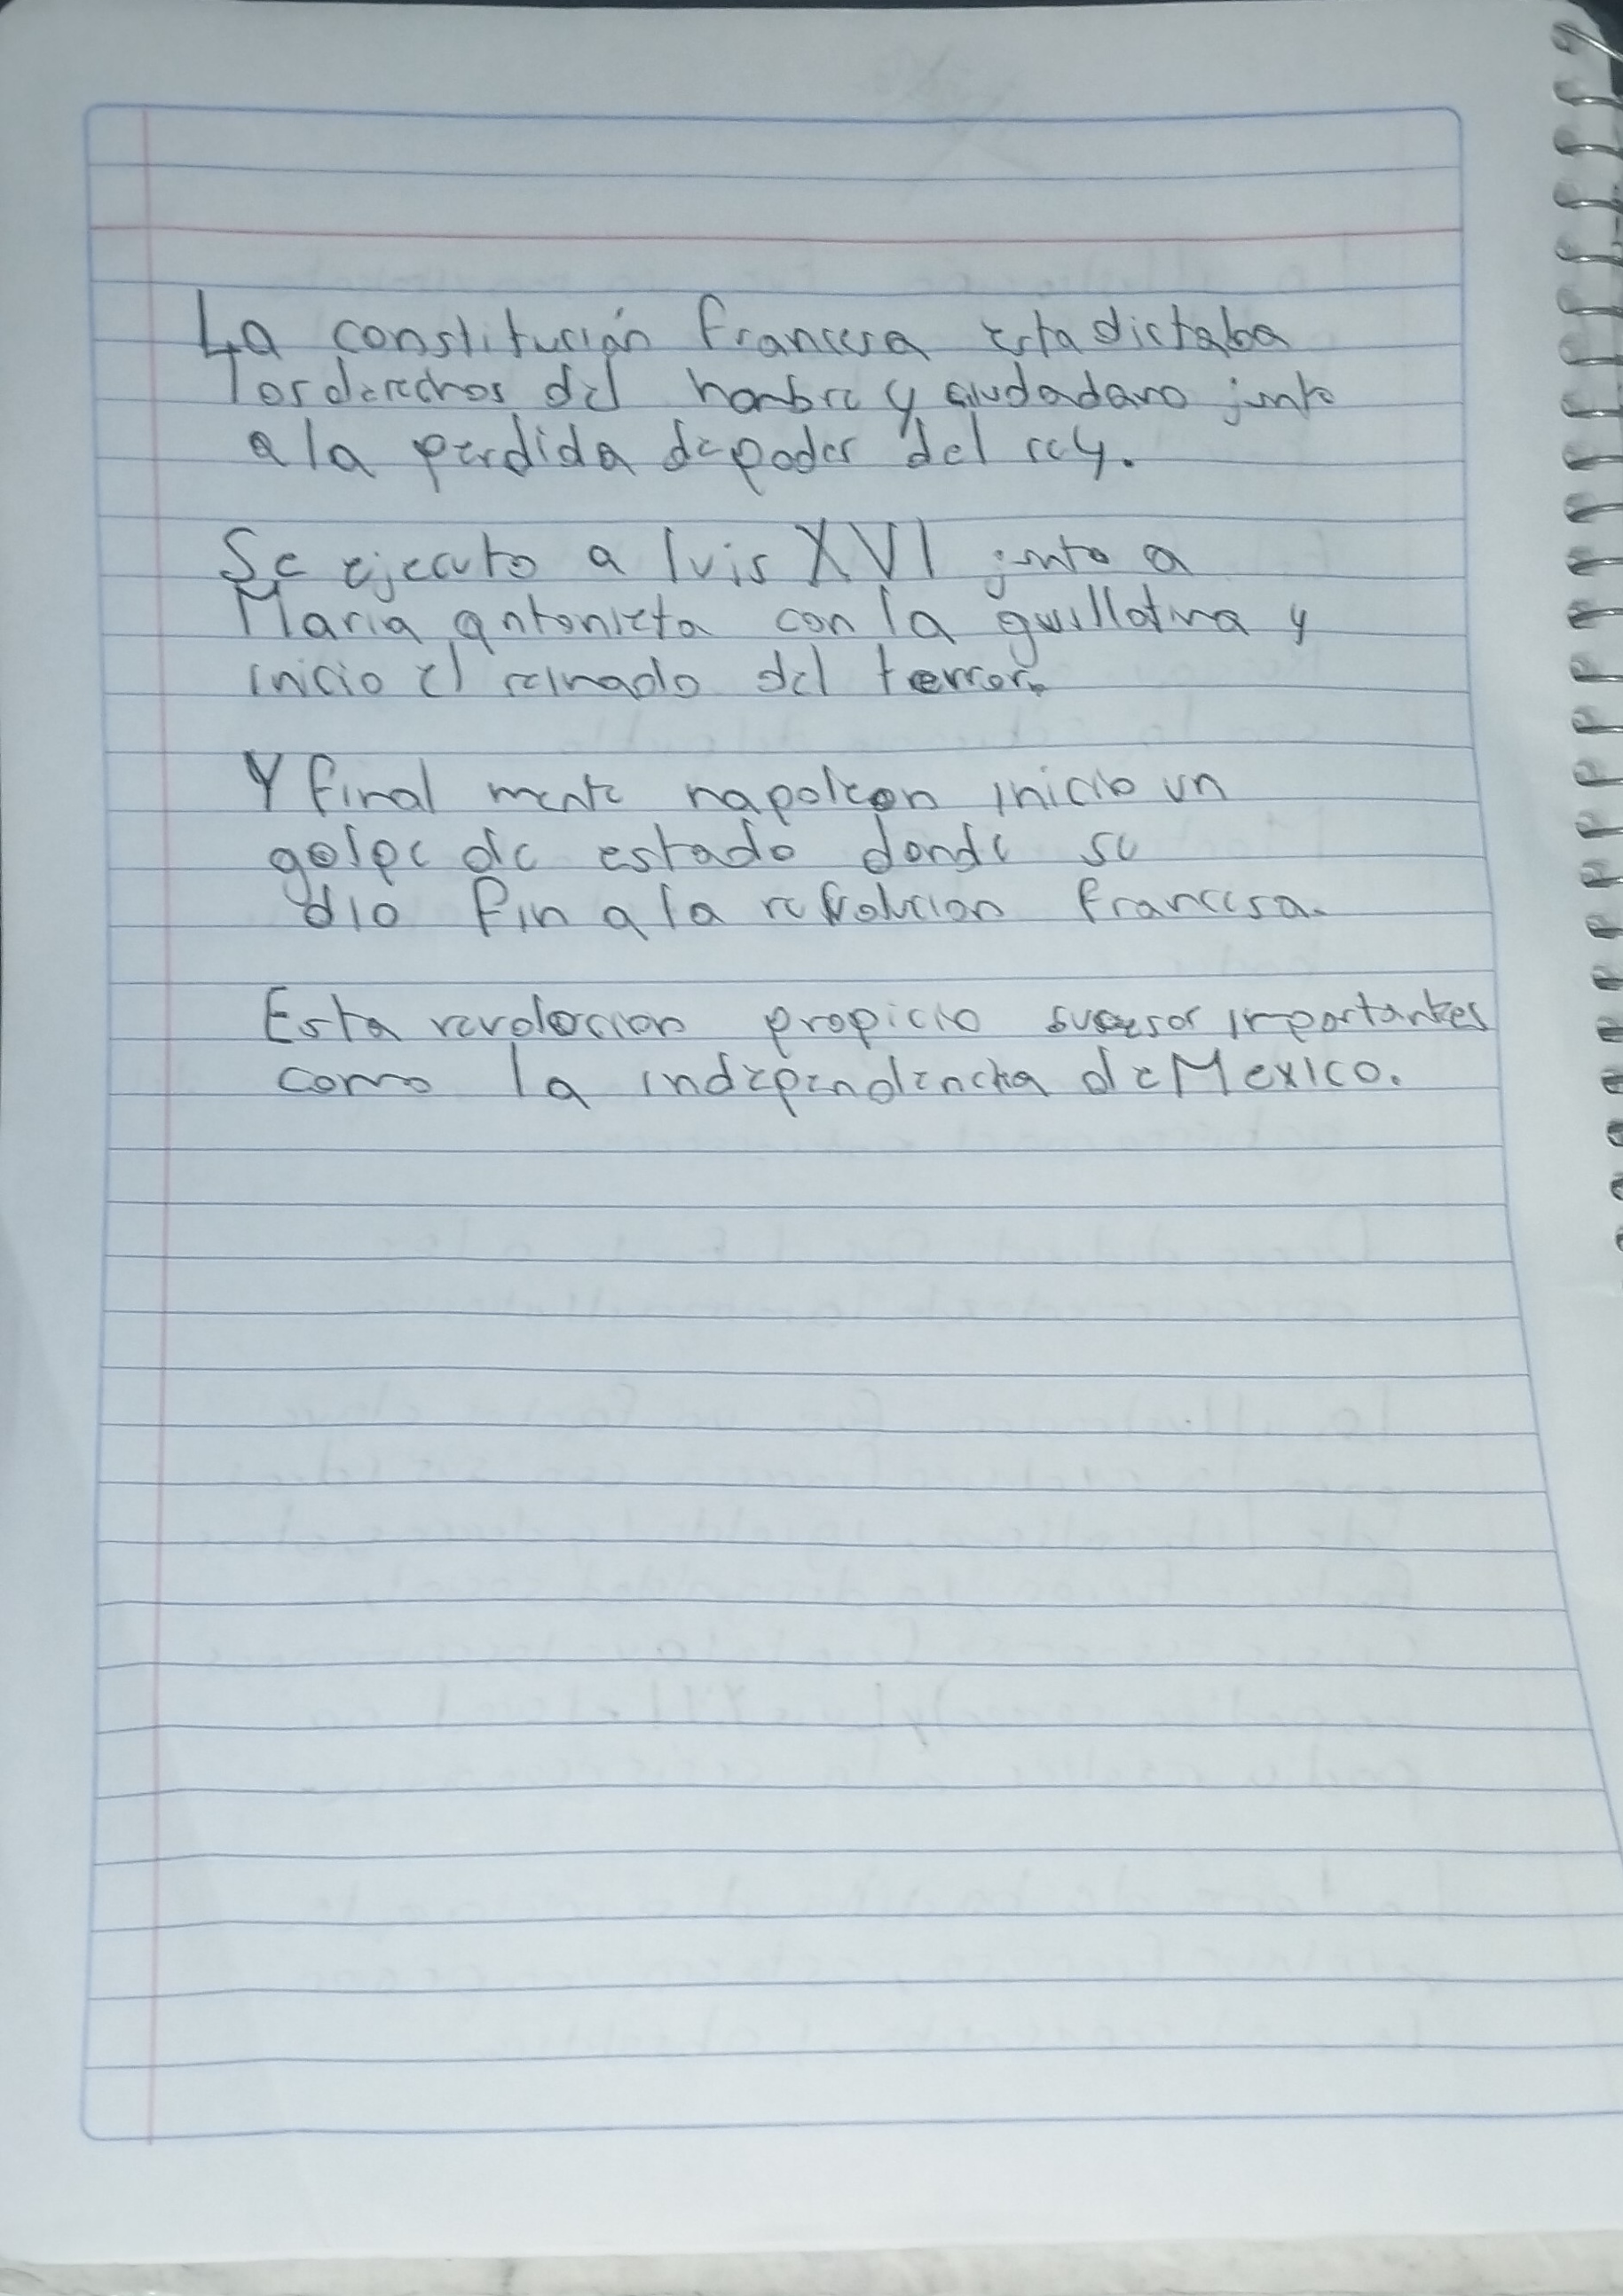 La constitución francesa esta dictaba
los derechos del hombre y ciudadano junto
a la perdida de poder del rey.
Se ejecuto a luis XVI junto a
Maria antonieta con la guillotina y
inicio el reinado del terror.
Y final mente napoleon inicio un
golpe de estado donde se
dio fin a la revolucion francesa.
Esta revolucion propicio sucesos importantes
como la independencia de Mexico.